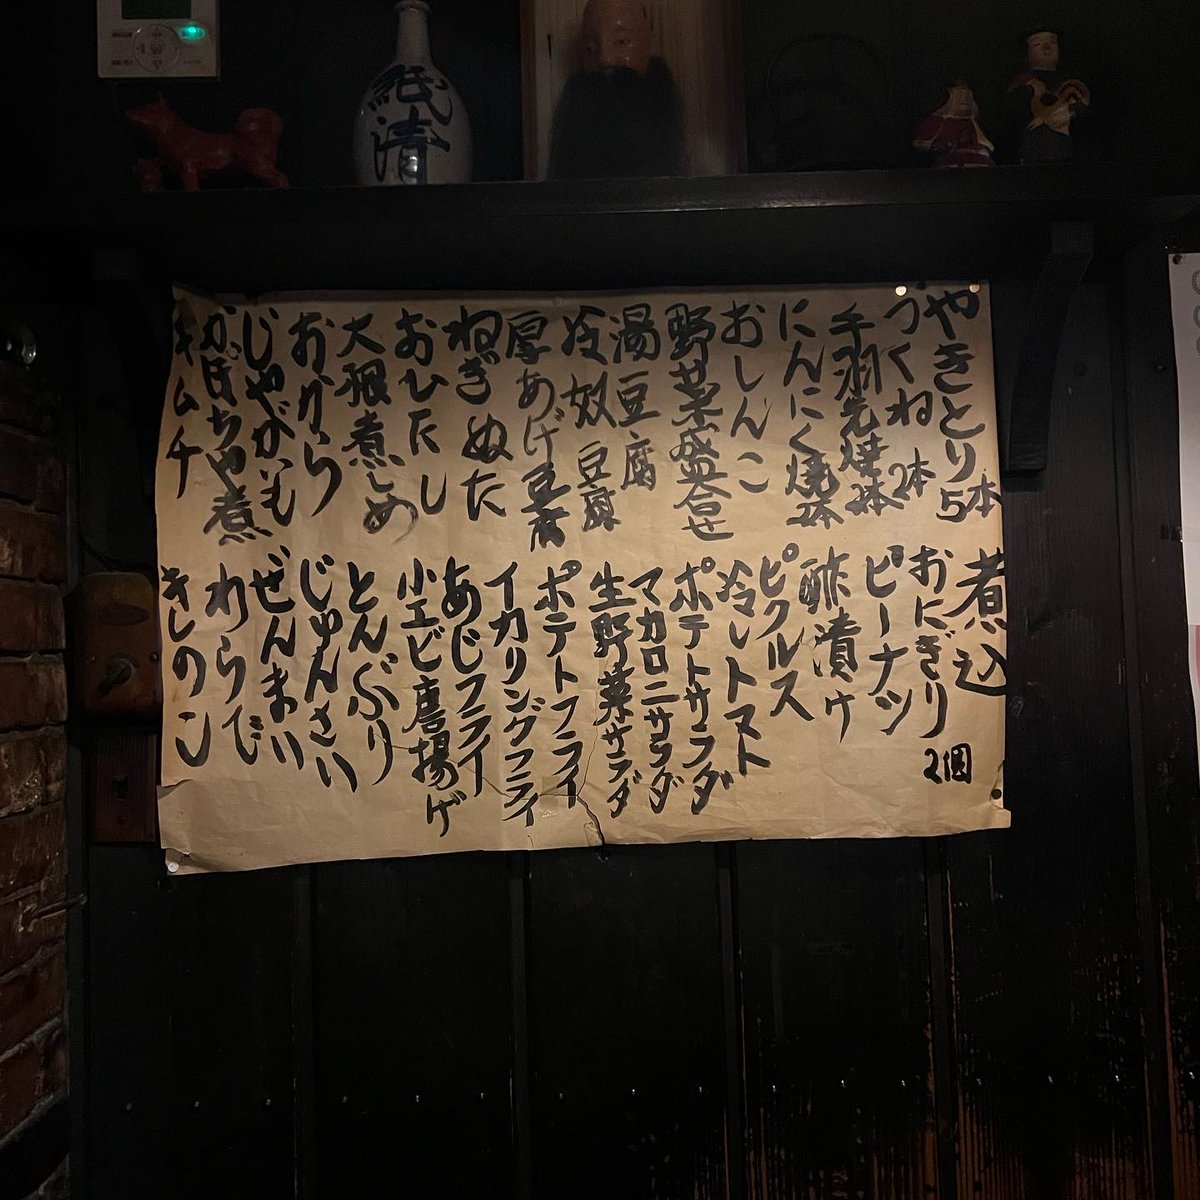 紙清
やきとり 5本
つくね 2本
手羽先焼 2本
にんにく焼 2本
おしんこ
野菜盛合せ
湯豆腐
冷奴豆腐
厚あげ豆腐
ねぎぬた
おひたし
大根煮しめ
おから
じゃがいも
かぼちゃ煮
キムチ
煮込
おにぎり 2個
ピーナツ
酢漬け
ピクルス
冷しトマト
ポテトサラダ
マカロニサラダ
生野菜サラダ
ポテトフライ
イカリングフライ
あじフライ
小エビ唐揚げ
とんぶり
じゅんさい
ぜんまい
わらび
きしのこ